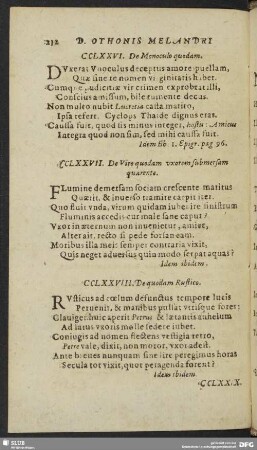 212 D. OTHONIS MELANDRI
CCLXXVI. De Monoculo quodam.
DVxerat Vnoculus deceptus amore puellam,
Quæ sine te nomen virginitatis habet.
Cumque pudicitiæ vir crimen exprobat illi,
Conscius amissum, bile tumente decus.
Non mulco nubit Lucretia casta marito,
Ipsa refert. Cyclops Thaide dignus eras.
Caussa fuit, quod sis minus integer, hostis: Amicus
Integra quod non sum, sed mihi caussa fuit.
Idem lib. 1. Epigr. pag 96.
CCLXXVII. De Viro quodam vxorem submersam
quærente.
FLumine demersam sociam crescente maritus
Quærit, & inuerso tramite carpit iter.
Quo fluit vnda, virum quidam iubet ire sinistrum
Fluminis accedis cur male sane caput?
Vxor in æternum non inuenietur, amice,
Alterait. recto si pede forsan eam.
Moribus illa meis semper contraria vixit,
Quis neget aduersus quin modo serpat aquas?
Idem ibidem.
CCLXXVIII. De quodam Rustico.
RVsticus ad cœlum defunctus tempore lucis
Peruenit, & manibus pulsat vtrisque fores:
Clauiger huic aperit Petrus & lætantis anhelum
Ad latus vxoris molle sedere iubet.
Coniugis ad nomen flectens vestigia retro,
Petre vale, dixit, non moror, vxor adest.
Ante breues nunquam sine lite peregimus horas
Secula tot vixit, quot peragenda forent?
Idem ibidem.
CCLXXIX.
SLUB
DFG